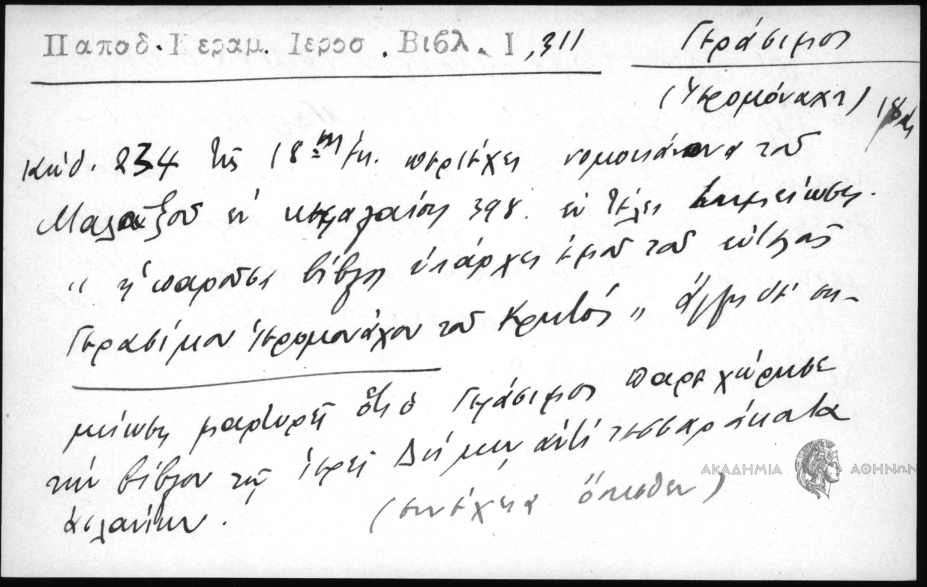 Παποδ. Κεραμ. Ιεροσ. Βιβλ. Ι, 311
Γεράσιμος
(Ἱερομόναχος) 18
Κώδ. 234 τῆς 18ης ἑκ. περιέχει νομοκάνονα τοῦ
Μαλαξοῦ ἐν κεφαλαίοις 398. ἐν τέλει σημείωσις.
" ἡ παροῦσα βίβλος ὑπάρχει ἐμοῦ τοῦ εὐτελοῦς
Γερασίμου ἱερομονάχου τοῦ Κρητός " ἄλλη δὲ ση-
μείωσις μαρτυρεῖ ὅτι ὁ Γεράσιμος παρεχώρησε
τὴν βίβλον τῷ ἱερεῖ ἀντὶ τεσσαράκοντα
ἀσλανίων. (συνέχεια ὄπισθεν)
ΑΚΑΔΗΜΙΑ ΑΘΗΝΩΝ